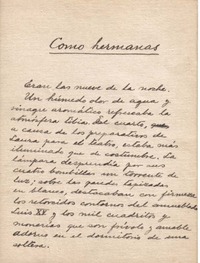 Como hermanas
Eran las nueve de la noche.
Un húmedo olor de agua y
vinagre aromático refrescaba la
atmósfera tibia. El cuarto,
a causa de los preparativos de
Laura para el teatro, estaba más
iluminado que de costumbre. La
lámpara desprendía por sus
cuatro bombillas un torrente de
luz; sobre las paredes tapizadas
en blanco, destacaban con firmeza
los retorcidos contornos del amueblado
Luis XV y los mil cuadritos y
monerías que son frívolo y amable
adorno en el dormitorio de una
soltera.